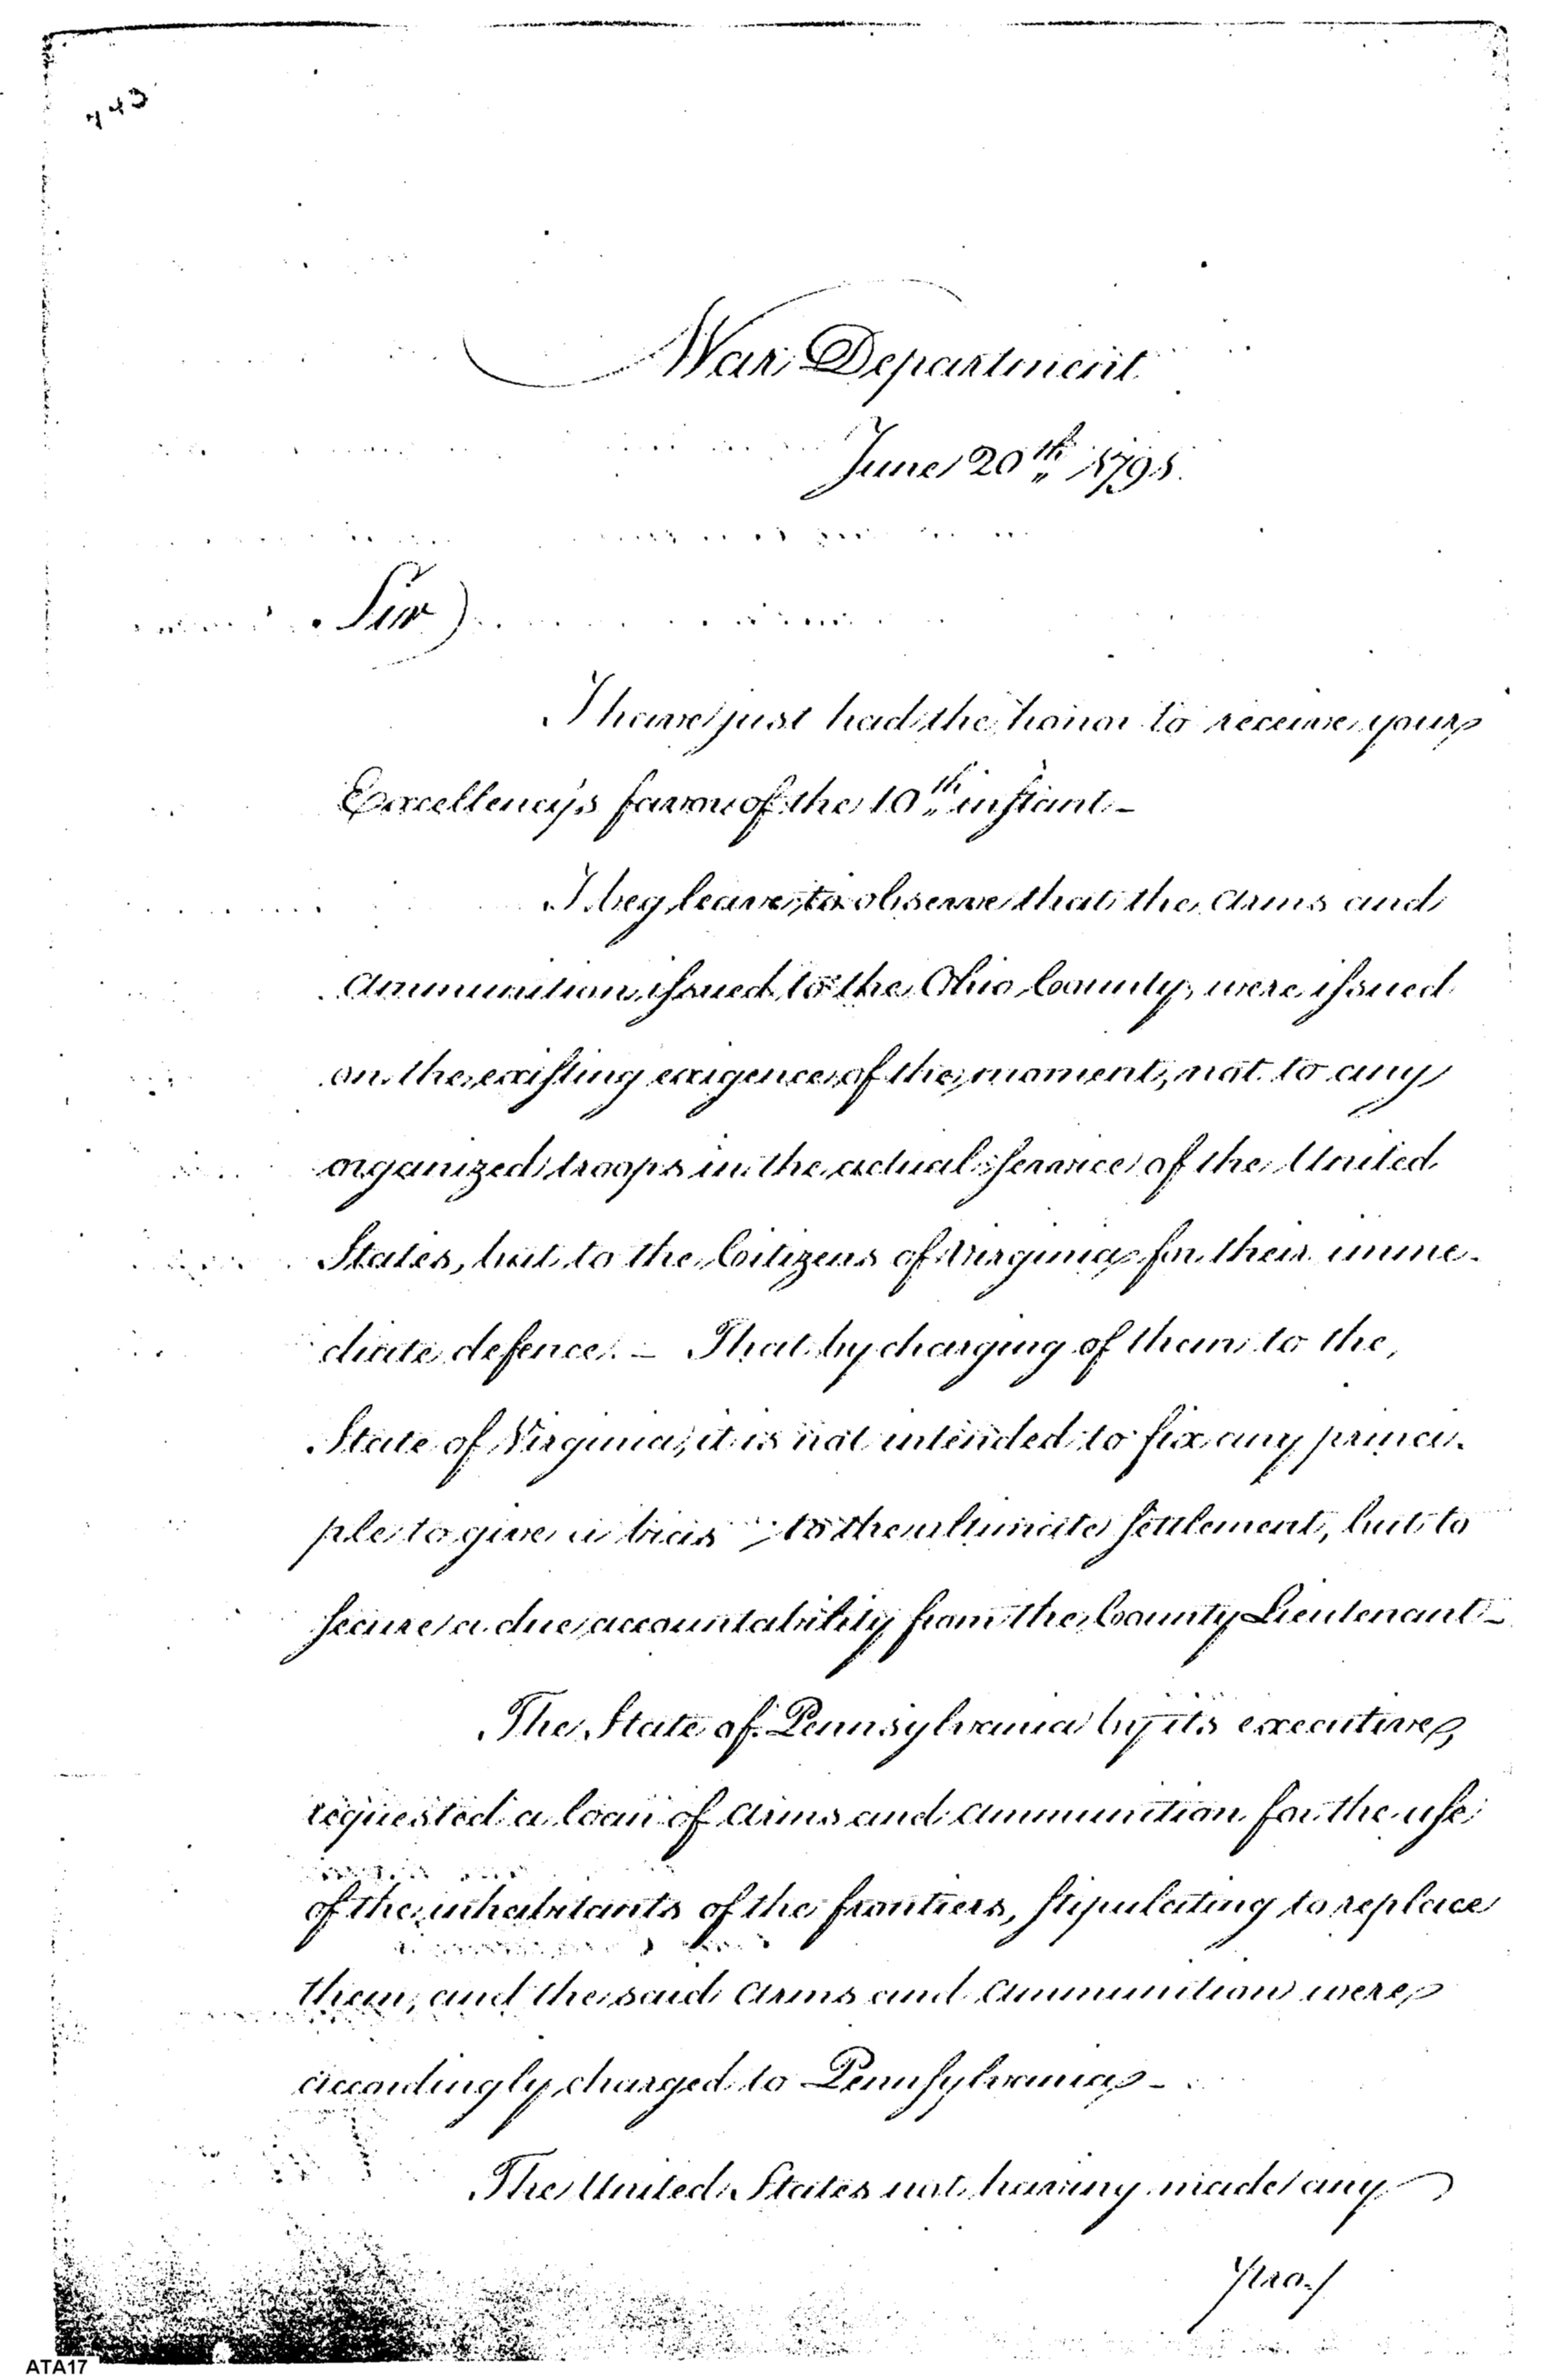 443
War Department
June 20th 1795.
Sir
I have just had the honor to receive your
Excellency's favor of the 10th instant -
I beg leave to observe that the arms and
ammunition issued to the Ohio County, were issued
on the existing exigence of the moment, not to any
organized troops in the actual service of the United
States, but to the Citizens of Virginia for their imme-
diate defence. - That by charging of them to the
State of Virginia, it is not intended to fix any princi-
ple to give a bias to the ultimate settlement, but to
secure a due accountability from the County Lieutenant -
The State of Pennsylvania by its executive,
requested a loan of arms and ammunition for the use
of the inhabitants of the frontiers, stipulating to replace
them, and the said arms and ammunition were
accordingly charged to Pennsylvania -
The United States not having made any
pro-
ATA17